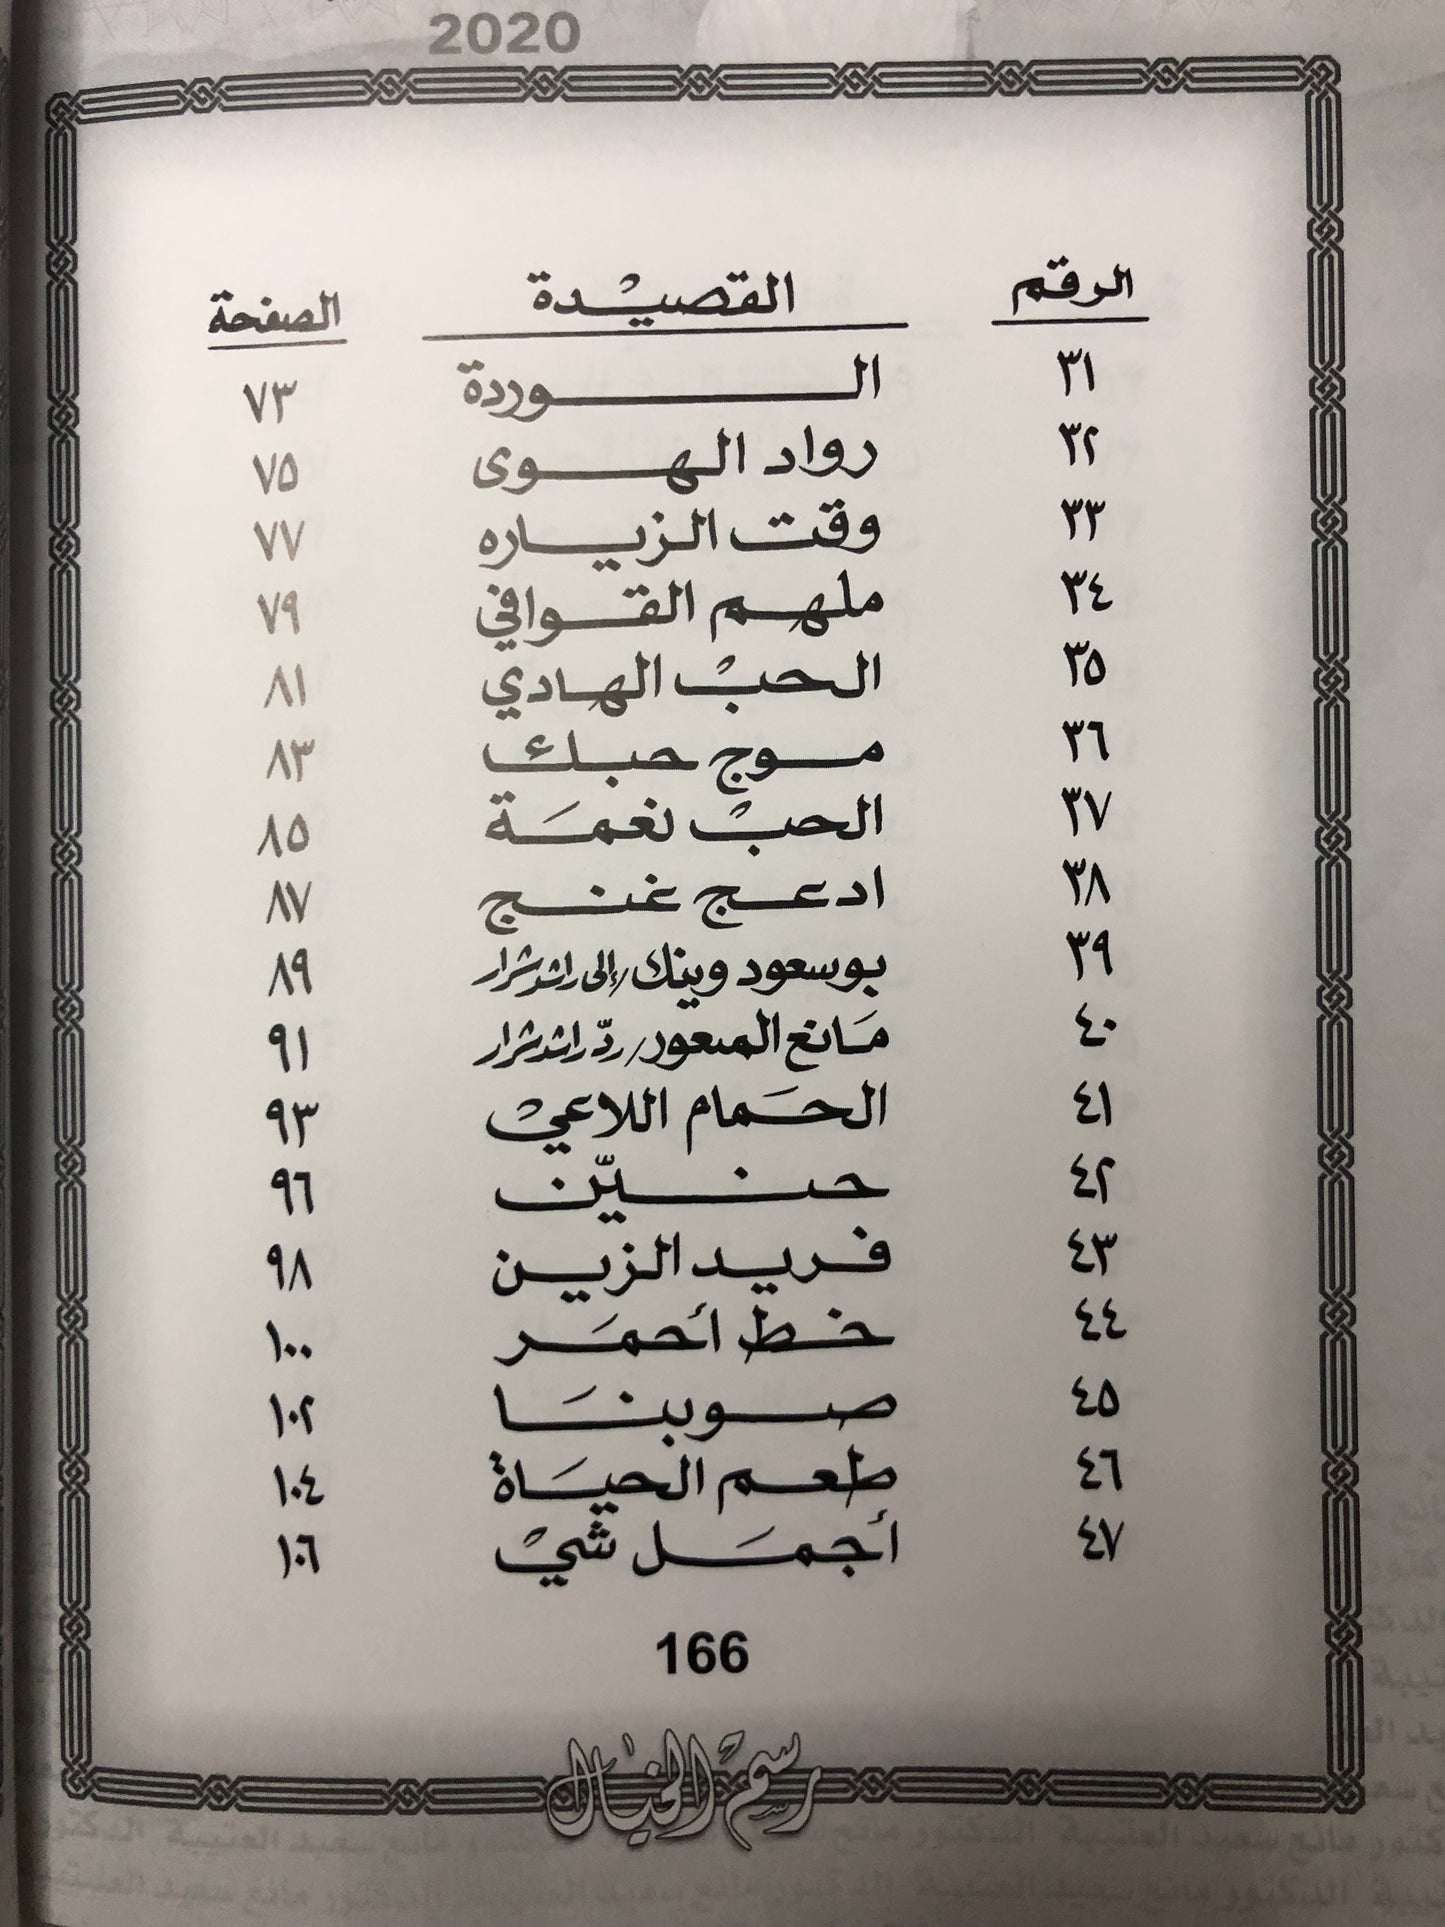 2020
الرقم القصيدة الصفحة
٣١ الـــوردة ٧٣
٣٢ رواد الهـوى ٧٥
٣٣ وقت الزياره ٧٧
٣٤ ملهم القوافي ٧٩
٣٥ الحبْ الهادي ٨١
٣٦ موج حبك ٨٣
٣٧ الحبْ نغمَة ٨٥
٣٨ ادعج غنج ٨٧
٣٩ بوسعود وينك/إلى راشد شرار ٨٩
٤٠ مَانع المعور/ردّ راشد شرار ٩١
٤١ الحمَام اللاعيْ ٩٣
٤٢ حنيّن ٩٦
٤٣ فريد الزين ٩٨
٤٤ خط أحمَر ١٠٠
٤٥ صوبنَا ١٠٢
٤٦ طعم الحيَاة ١٠٤
٤٧ أجمَل شيْ ١٠٦
166
رسم الخيال